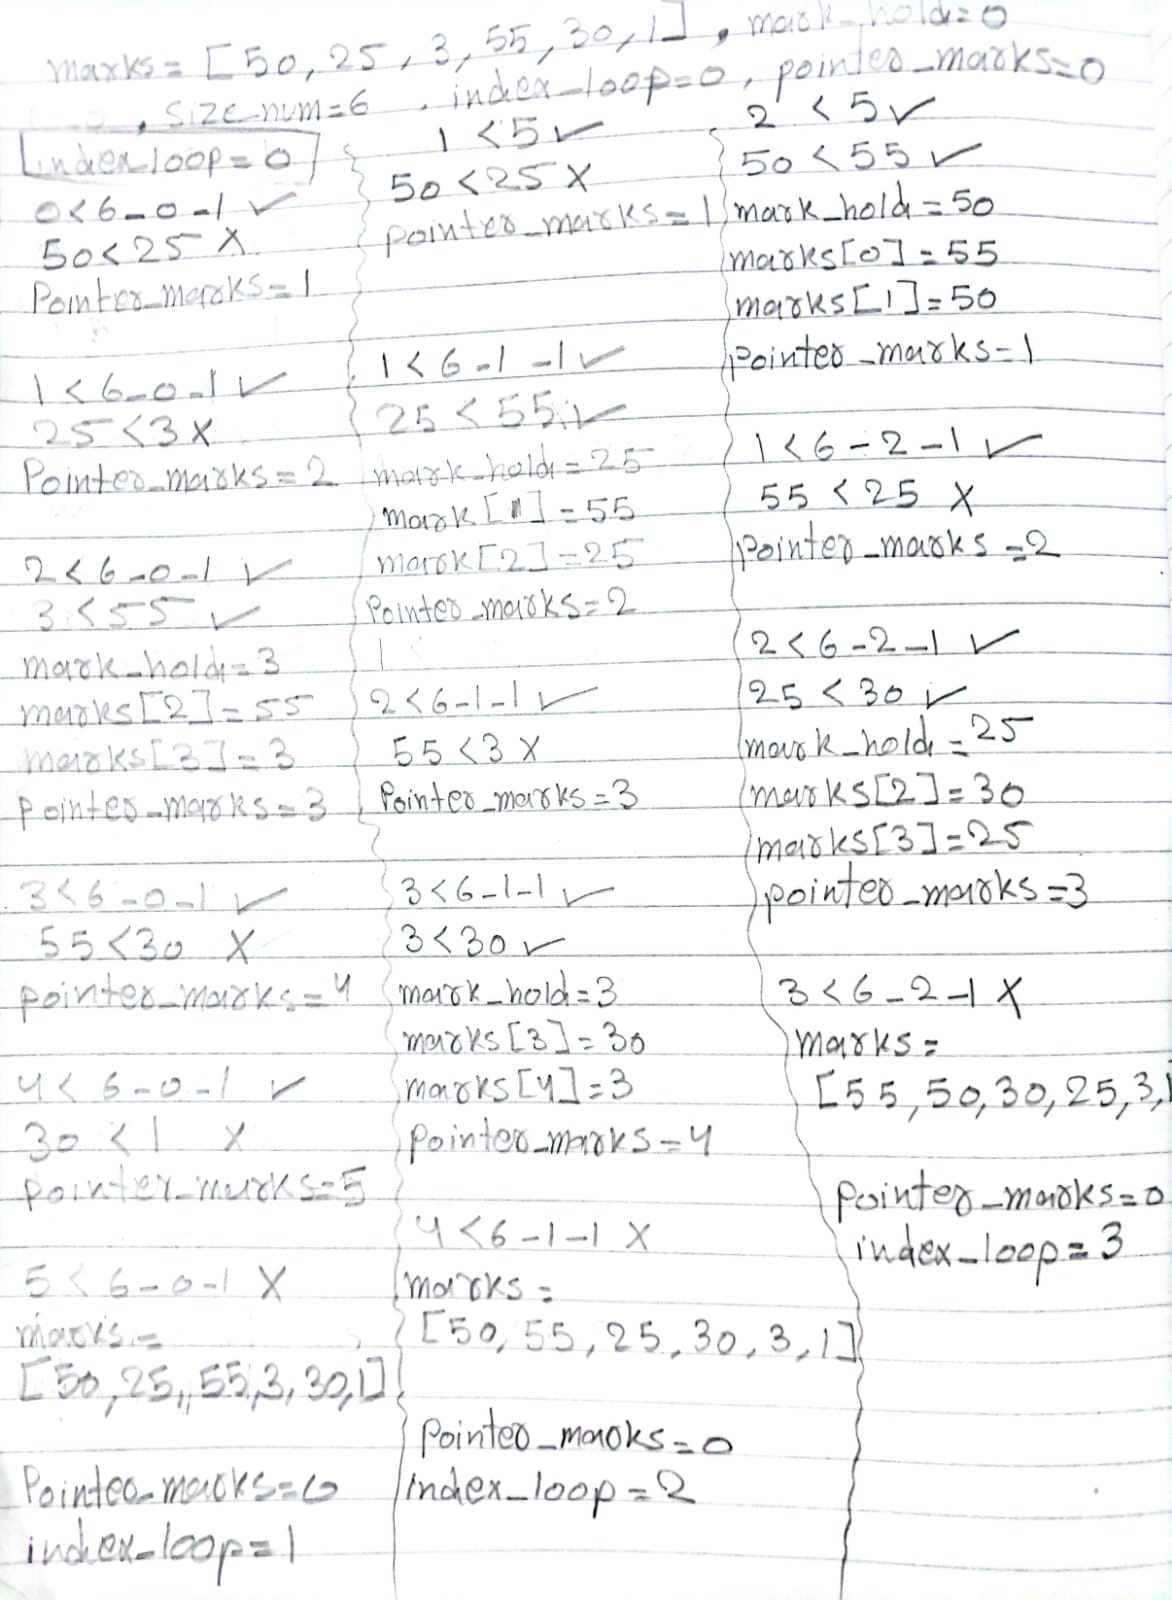 marks = [50, 25, 3, 55, 30, 1], mark_hold = 0
, size_num=6 , index_loop=0, pointer_marks=0
index_loop = 0
0<6-0-1 ✓
50<25 X
Pointer_marks=1
1<6-0-1 ✓
25<3 X
Pointer_marks=2
2<6-0-1 ✓
3<55 ✓
mark_hold=3
marks[2]=55
marks[3]=3
pointer_marks=3
3<6-0-1 ✓
55<30 X
pointer_marks=4
4<6-0-1 ✓
30<1 X
pointer_marks=5
5<6-0-1 X
marks=
[50,25,55,3,30,1]
Pointer_marks=0
index_loop=1
1<5 ✓
50<25 X
pointer_marks=1
1<6-1-1 ✓
25<55 ✓
mark_hold=25
mark[1]=55
mark[2]=25
Pointer_marks=2
2<6-1-1 ✓
55<3 X
Pointer_marks=3
3<6-1-1 ✓
3<30 ✓
mark_hold=3
marks[3]=30
marks[4]=3
pointer_marks=4
4<6-1-1 X
marks=
[50,55,25,30,3,1]
pointer_marks=0
index_loop=2
2<5 ✓
50<55 ✓
mark_hold=50
marks[0]=55
marks[1]=50
pointer_marks=1
1<6-2-1 ✓
55<25 X
pointer_marks=2
2<6-2-1 ✓
25<30 ✓
mark_hold=25
marks[2]=30
marks[3]=25
pointer_marks=3
3<6-2-1 X
marks=
[55,50,30,25,3,1
pointer_marks=0
index_loop=3